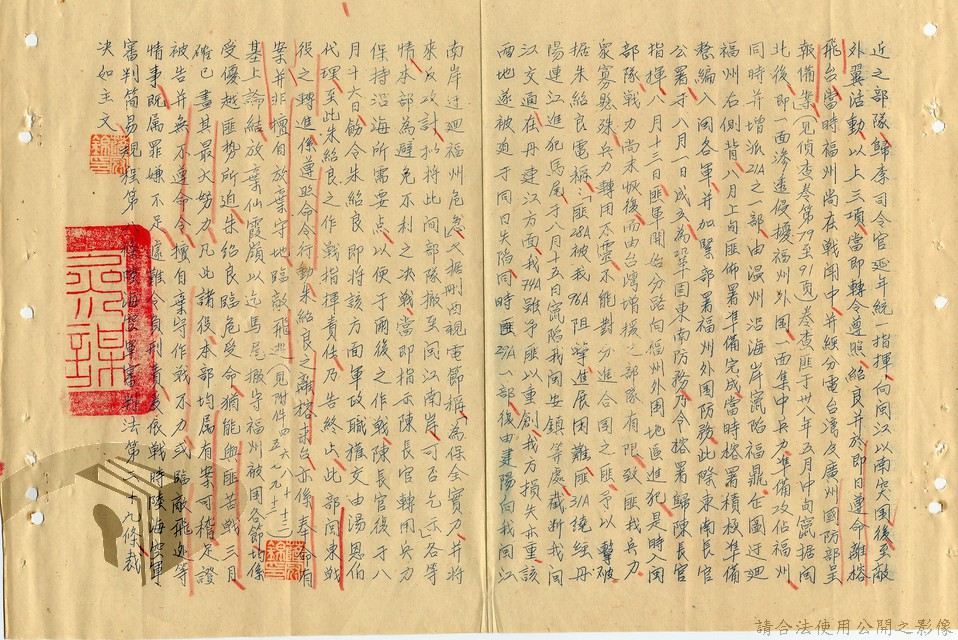 近之部隊歸李司令官延年統一指揮、向閩江以南突圍後至敵
外翼活動、以上三項、當即轉令遵照、紹良并於即日遵命離榕
飛台、當時福州尚在戰鬥中、并經分電台灣及廣州國防部呈
報備案(見偵查卷第79至91頁)卷查匪于卅八年五月中旬竄据閩
北後、即一面滲透侵擾福州外圍、一面集中兵力、準備攻佔福州
同時并增派21A之一部、由溫州沿海岸竄陷福鼎、企圖迂迴
福州右側背、八月上旬匪佈署準備完成、當時榕署積極準備
整編入閩各軍、并加緊部署福州外圍防務、此際東南長官
公署于八月一日成立、為鞏固東南防務、乃令榕署歸陳長官
指揮、八月十三日匪軍開始分路向福州外圍地區進犯、是時入閩
部隊戰力尚未恢復、而由台灣增援之部隊有限、致匪我兵力
眾寡懸殊、兵力轉用不靈、不能對分進合圍之匪予以擊破、
据朱紹良電稱:「匪28A被我96A阻擊、進展困難、匪31A繞經丹
陽連江、迂迴進犯馬尾、于八月十五日竄陷我閩安鎮等處、截斷我閩
江交通、在丹丹建江方面、我74A雖予匪以重創、我方損失亦重、該
兩地遂被迫于同日失陷、同時匪29A一部、後由建陽向我閩江
南岸迂迴、福州危急」又据刪西視電節稱「為保全實力、并將
來反攻計、擬將此間部隊撤至閩江南岸、可否乞示」各等
情、本部為避免不利之決戰、當即捐示陳長官轉用兵力
保持沿海所需要點、以便于爾後之作戰、陳長官復于八
月十六日飭令朱紹良即將該方面軍政職權交由湯恩伯
代理、至此朱紹良之作戰指揮責任、乃告終止、此部閩東戰
役之轉進、係遵照命令行動、朱紹良之離榕來台、亦係奉命有
案、并非擅自放棄守地、臨敵飛逃(見附件四五六八九七十十二十三)
基上論結、放棄仙霞嶺、以迄馬尾、撤守福州被困各節、均係
受優越匪勢所迫、朱紹良臨危受命、猶能與匪苦戰三月
確已盡其最大努力、凡此諸役、本部均屬有案可稽、足證
被告并無不遵命令擅自棄守、作戰不力、或臨敵飛逃等
情事、既屬罪嫌不足、遽難令負刑責、爰依戰時陸海空軍
審判簡易規程第　條陸海空軍審判法第三十九條、裁
決如主文、
請合法使用公開之影像